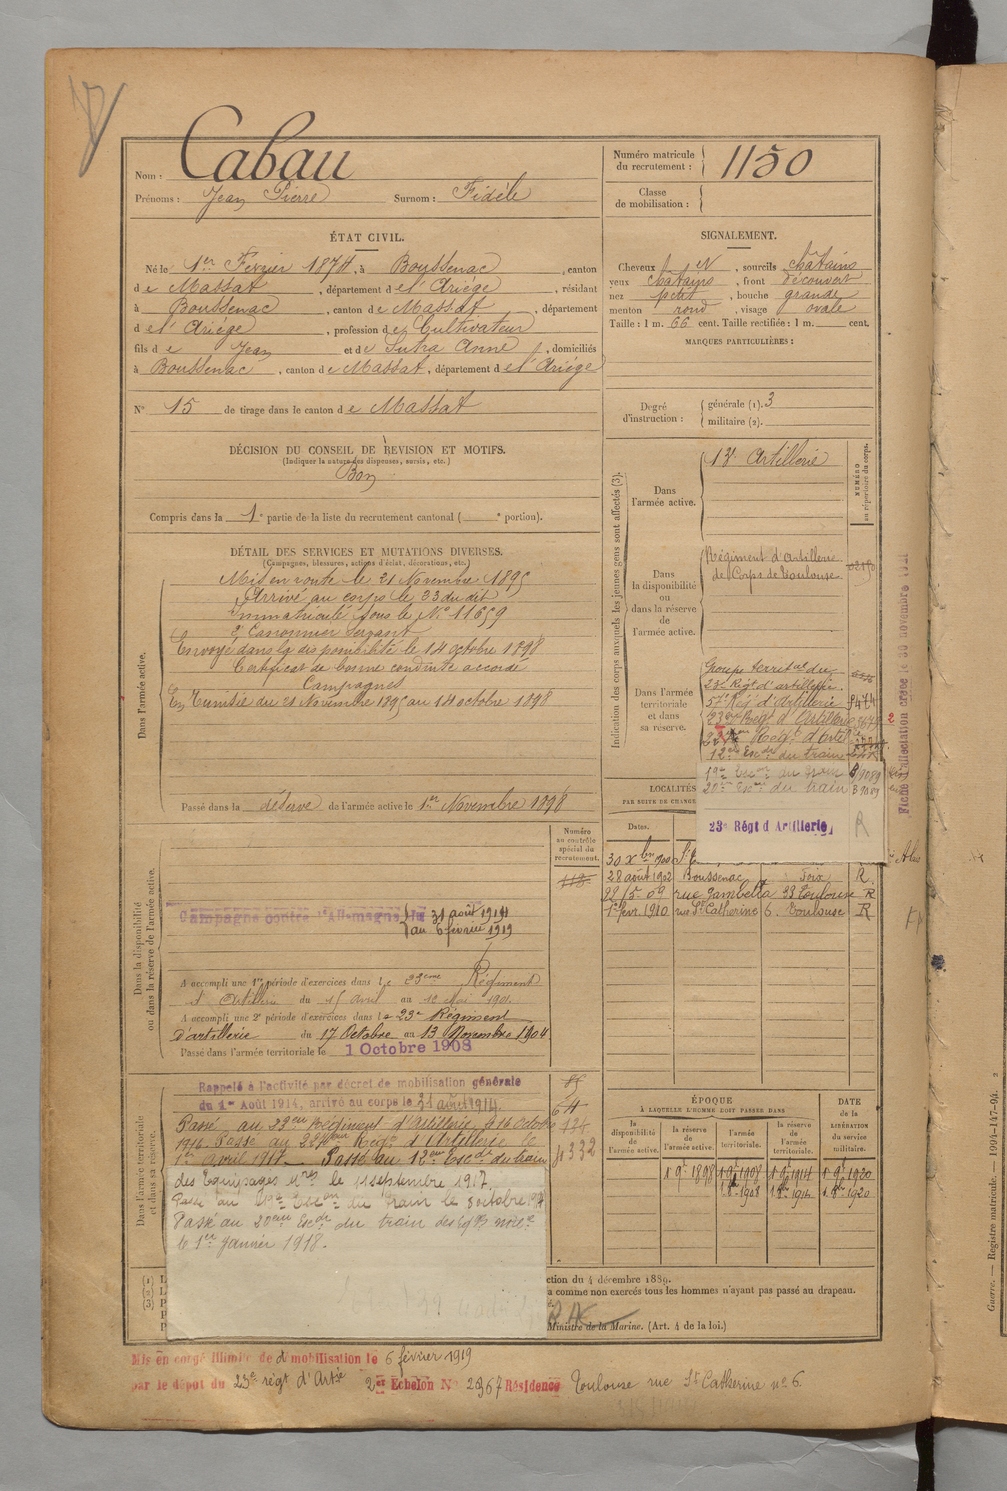 Nom : Cabau
Prénoms : Jean Pierre Surnom : Fidèle
Numéro matricule du recrutement : 1150
Classe de mobilisation :
ÉTAT CIVIL.
Né le 1er Février 1874, à Boussenac, canton
de Massat, département de l'Ariège, résidant
à Boussenac, canton de Massat, département
de l'Ariège, profession de Cultivateur
fils de Jean et de Sutra Anne, domiciliés
à Boussenac, canton de Massat, département de l'Ariège
N° 15 de tirage dans le canton de Massat
SIGNALEMENT.
Cheveux N, sourcils châtains
yeux châtains, front découvert
nez petit, bouche grande
menton rond, visage ovale
Taille : 1 m. 66 cent. Taille rectifiée : 1 m. cent.
MARQUES PARTICULIÈRES :
Degré d'instruction : générale (1). 3
militaire (2).
DÉCISION DU CONSEIL DE REVISION ET MOTIFS.
(Indiquer la nature des dispenses, sursis, etc.)
Bon
Compris dans la 1e partie de la liste du recrutement cantonal ( e portion).
DÉTAIL DES SERVICES ET MUTATIONS DIVERSES.
(Campagnes, blessures, actions d'éclat, décorations, etc.)
Dans l'armée active.
Mis en route le 21 Novembre 1895
Arrivé au corps le 23 du dit
Immatriculé sous le N° 11659
2e Canonnier servant
Envoyé dans la disponibilité le 14 octobre 1898
Certificat de bonne conduite accordé
Campagnes
En Tunisie du 21 Novembre 1895 au 14 octobre 1898
Passé dans la réserve de l'armée active le 1er Novembre 1898
Indication des corps auxquels les jeunes gens sont affectés (3).
NUMÉRO au répertoire du corps.
Dans l'armée active.
13e Artillerie
Dans la disponibilité ou dans la réserve de l'armée active.
Régiment d'artillerie
de Corps de Toulouse
Dans l'armée territoriale et dans sa réserve.
Groupe territal du
23e Régt d'artillerie.
57e Rég d'Artillerie
23e Régt d'Artillerie
Régt d'Artie
12e Escon du train
19e Escon du train
20e Escon du train B 9089
23e Régt d Artillerie, R
Fiche d'affectation créée le 30 novembre
LOCALITÉS
PAR SUITE DE CHANGE
Dates.
30 Xbre 900
28 août 1902 Boussenac Foix R
22/5-09 rue Gambetta 33 Toulouse R
1er fevr. 1910 rue Ste Catherine 6. Toulouse R
Dans la disponibilité ou dans la réserve de l'armée active.
Numéro au contrôle spécial du recrutement.
Campagne contre l'Allemagne du 31 août 1914
au 6 février 1919
A accompli une 1re période d'exercices dans le 23eme Régiment
d'Artillerie du 15 avril au 12 Mai 1901.
A accompli une 2e période d'exercices dans le 23e Régiment
D'artillerie du 17 Octobre au 13 Novembre 1904
Passé dans l'armée territoriale le 1 Octobre 1908
Dans l'armée territoriale et dans sa réserve.
Rappelé à l'activité par décret de mobilisation générale
du 1er Août 1914, arrivé au corps le 31 août 1914.
Passé au Régiment d'Artillerie le 16 octobre
1916. Passé au Régt d'Artillerie le
1er avril 1917. Passé au 12eme Escon du train
des Équipages mres le 11 septembre 1917.
Passé au 19e Escon du train le 3 octobre 1917
Passé au 20eme Escon du train des Eqges mres
le 1er Janvier 1918.
ÉPOQUE
À LAQUELLE L'HOMME DOIT PASSER DANS
la disponibilité de l'armée active.
la réserve de l'armée active.
l'armée territoriale.
la réserve de l'armée territoriale.
DATE de la LIBÉRATION du service militaire.
1 9e 1898 1 9e 1908 1 9e 1914 1 9e 1920
1.8e 1908 1.8e 1914 1.8e 1920
(1) L
(2) L
(3) P
ction du 4 décembre 1889.
a comme non exercés tous les hommes n'ayant pas passé au drapeau.
Ministre de la Marine. (Art. 4 de la loi.)
Mis en congé illimité de démobilisation le 6 février 1919
par le dépôt du 23e régt d'Artie 2e Echelon N° 2967 Résidence Toulouse rue Ste Catherine n° 6
Guerre. — Registre matricule. — 1994-147-94. 2